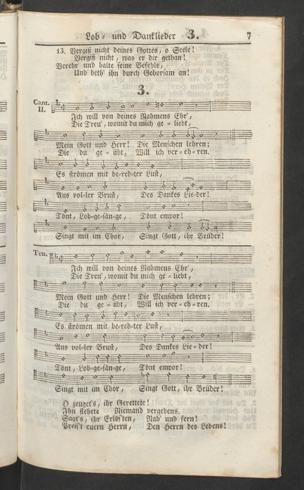 Lob- und Danklieder 3. 7
13. Vergiß nicht deines Gottes, o Seele!
Vergiß nicht, was er dir gethan!
Verehr und halte seine Befehle,
Und beth' ihn durch Gehorsam an!
3.
Cant. II.
Ich will von deines Nahmens Ehr',
Die Treu', womit du mich ge- liebt,
Mein Gott und Herr! Die Menschen lehren;
Die du ge- übt, Will ich ver- eh- ren.
Es strömen mit be-red-ter Lust,
Aus vol-ler Brust, Des Dankes Lie-der!
Tönt, Lob-ge-sän-ge, Tönt empor!
Singt mit im Chor, Singt Gott, ihr Brüder!
Ten.
Ich will von deines Nahmens Ehr',
Die Treu', womit du mich ge- liebt,
Mein Gott und Herr! Die Menschen lehren;
Die du ge- übt, Will ich ver- eh- ren.
Es strömen mit be-red-ter Lust,
Aus vol-ler Brust, Des Dankes Lie- der!
Tönt, Lob-ge-sän-ge, Tönt empor!
Singt mit im Chor, Singt Gott, ihr Brüder!
O zeuget's, ihr Gerettete!
Ihn flehete Niemand vergebens.
Sagt's, ihr Erlös'ten, Nah' und fern!
Preis't euern Herrn, Den Herren des Lebens!